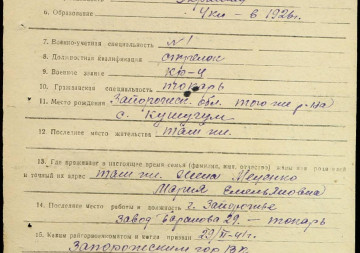 6. Образование 4 кл - в 1926 г.
7. Военно-учетная специальность № 1
8. Должностная квалификация стрелок
9. Военное звание кр-ц
10. Гражданская специальность токарь
11. Место рождения Запорожск. обл. того-же р-на
с. Кушугум
12. Последнее место жительства там же.
13. Где проживает в настоящее время семья (фамилия, имя, отчество)
и точный их адрес там же. Жена
Мария Емельяновна
14. Последнее место работы и должность г. Запорожье
завод Баранова 29 - токарь
15. Каким райгорвоенкоматом и когда призван 29/VI-41 г.
Запорожским гор ВК.